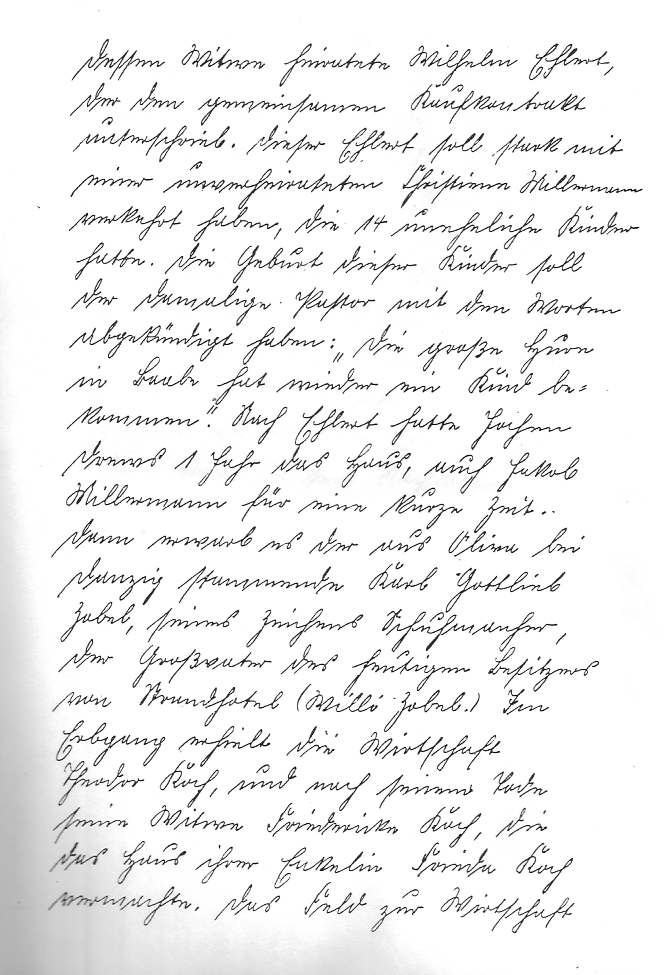 Dessen Witwe heiratete Wilhelm Ehlert,
der den gemeinsamen Kaufkontrakt
unterschrieb. Dieser Ehlert soll stark mit
einer unverheirateten Christiene Willermann
verkehrt haben, die 14 uneheliche Kinder
hatte. Die Geburt dieser Kinder soll
der damalige Pastor mit den Worten
abgekündigt haben: „Die große Hure
in Baabe hat wieder ein Kind be=
kommen". Nach Ehlert hatte Jochen
Drews 1 Jahr das Haus, auch Jakob
Willermann für eine kurze Zeit..
Dann erwarb es der aus Oliva bei
Danzig stammende Karl Gottlieb
Zobel, seines Zeichens Schuhmacher,
der Großvater des heutigen Besitzers
von Strandhotel (Willi Zobel.) Im
Erbgang erhielt die Wirtschaft
Theodor Koch, und nach seinem Tode
seine Witwe Friedericke Koch, die
das Haus ihrer Enkelin Frieda Koch
vermachte. Das Feld zur Wirtschaft